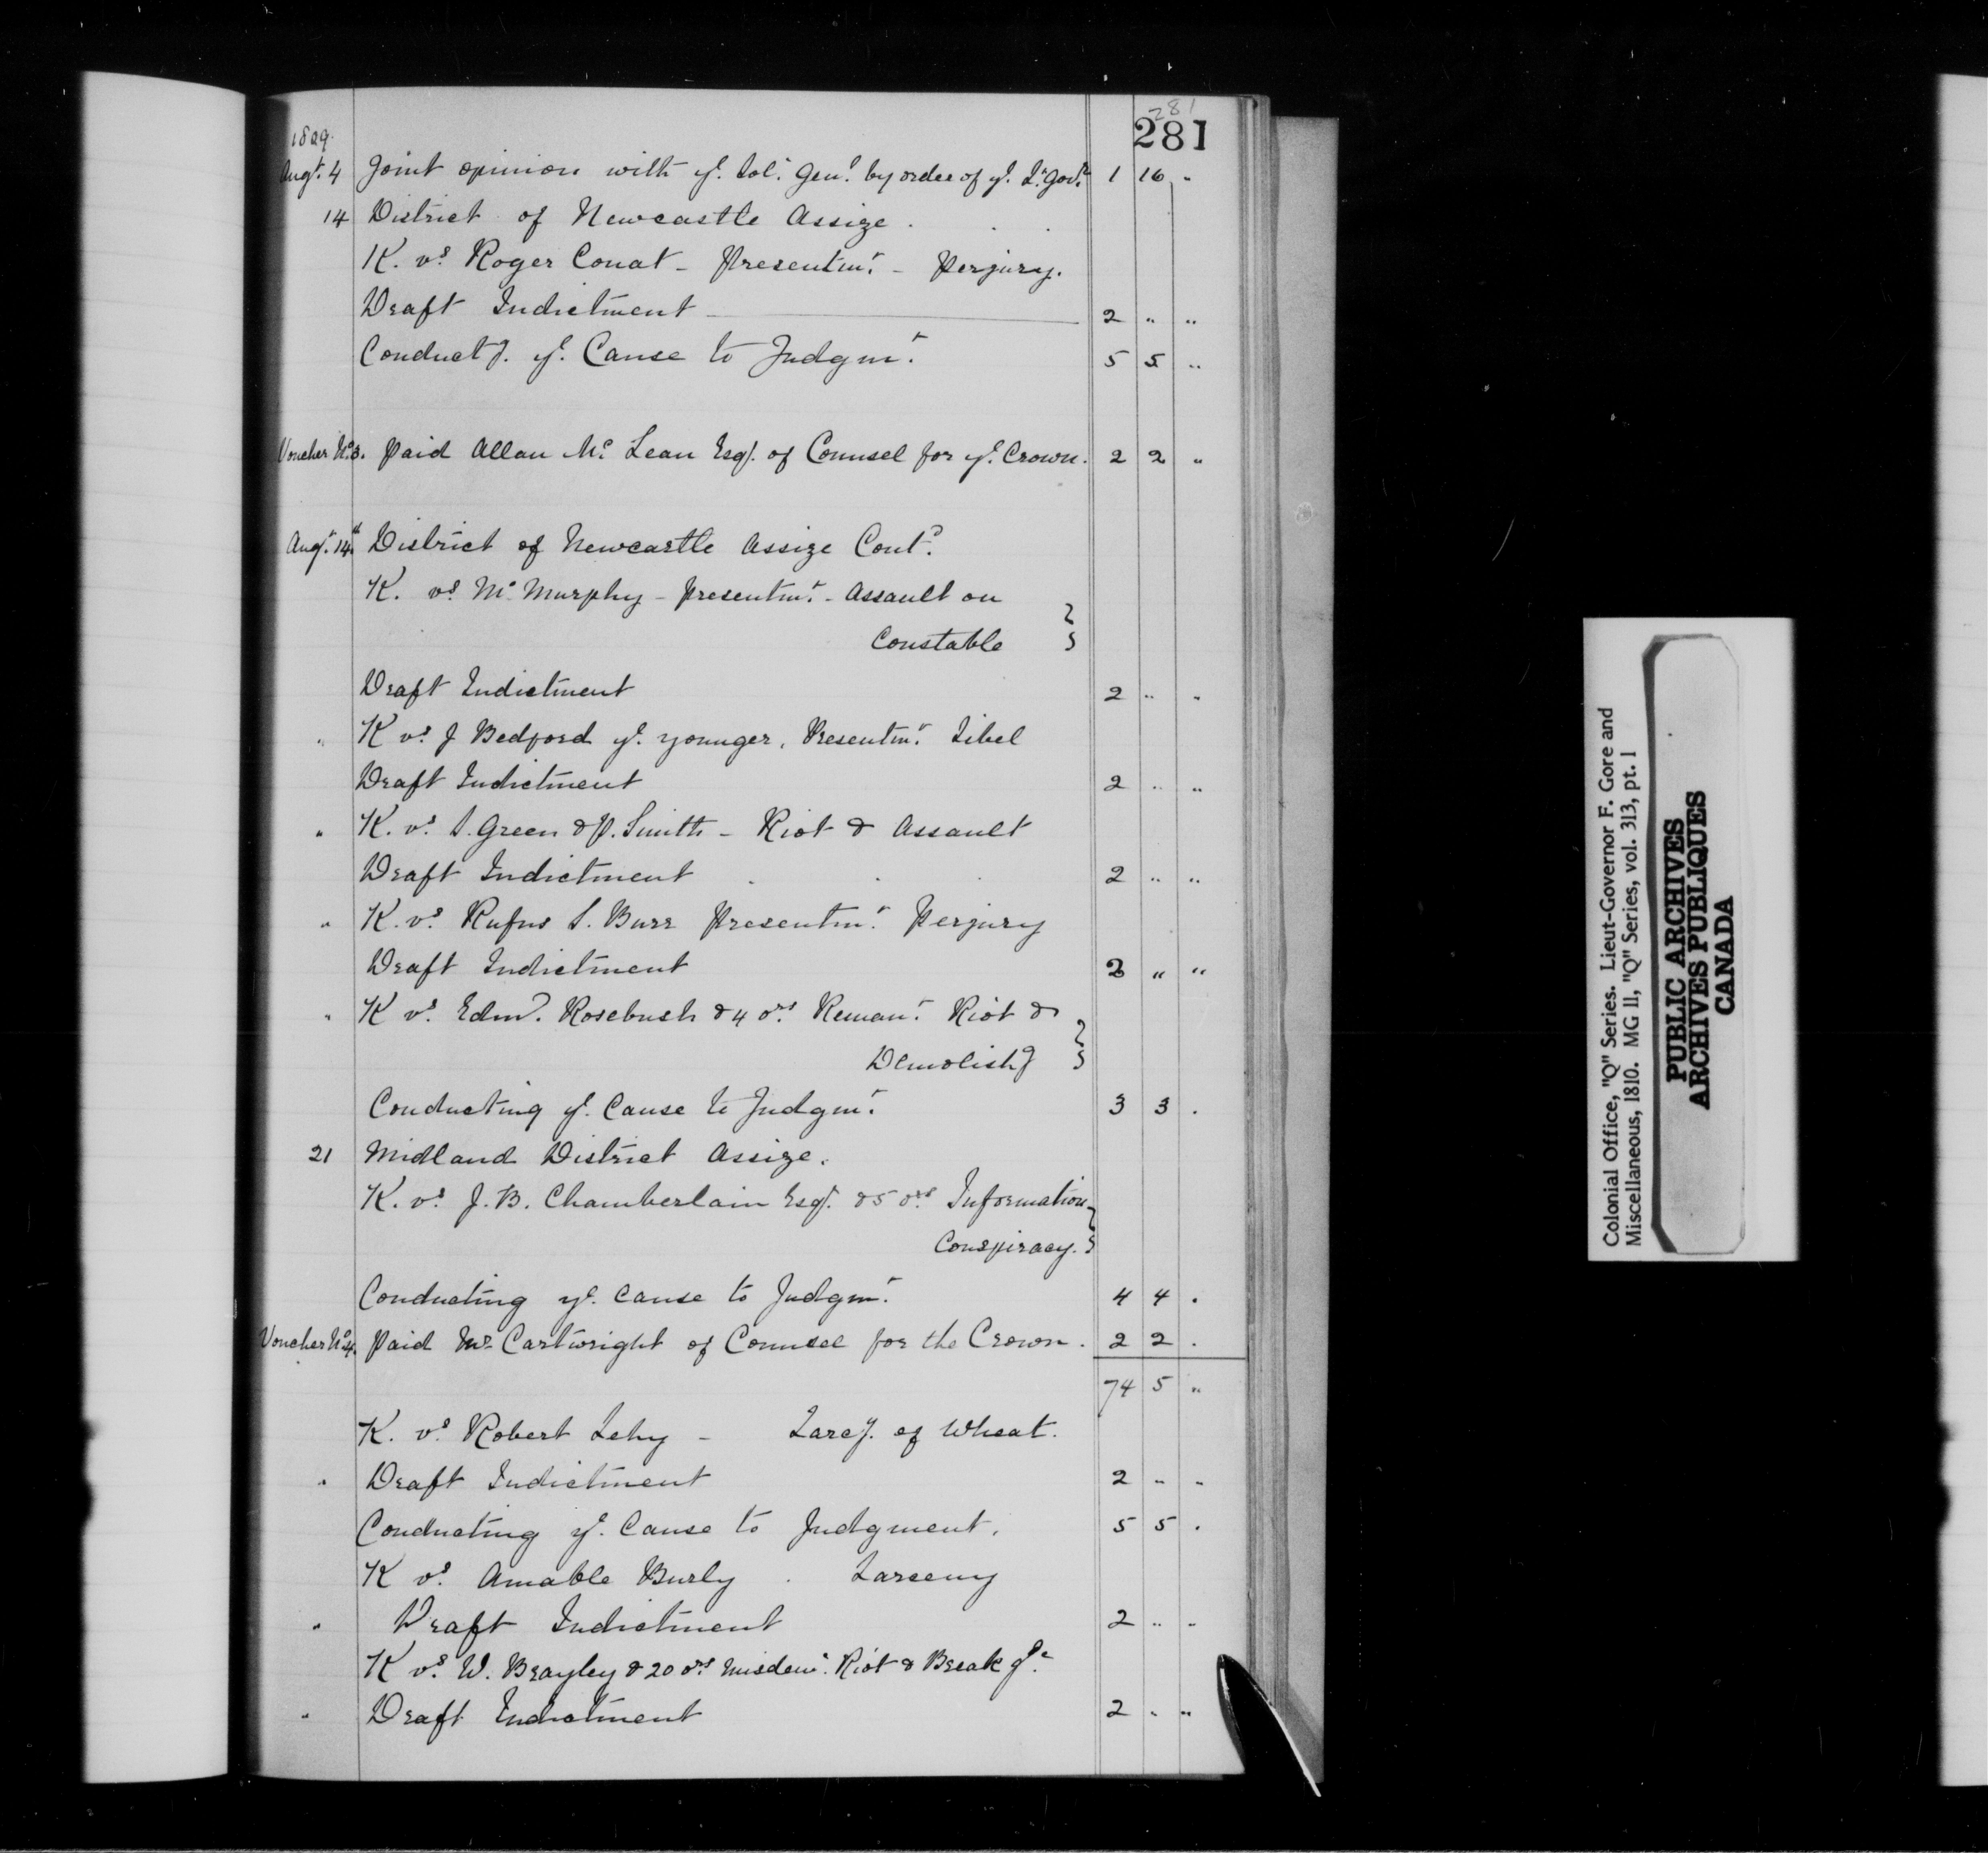 281
281
1809.
Augt. 4 Joint opinion with ye. Sol. Genl. by order of ye. Lt. Govr. 1 16 "
14 District of Newcastle Assize .
K. vs. Roger Conat - Presentmt. - Perjury.
Draft Indictment 2 " "
Conductg. ye. Cause to Judgmt. 5 5 "
Voucher No. 3. Paid Allan Mc. Lean Esq. of Counsel for ye. Crown. 2 2 "
Augt. 14th. District of Newcastle Assize Contd.
K. vs. Mc. Murphy - Presentmt. - Assault on
Constable
Draft Indictment 2 " "
" K vs. J Bedford ye. younger, Presentmt. Libel
Draft Indictment 2 " "
" K. vs. S. Green & P. Smith - Riot & Assault
Draft Indictment 2 " "
" K. vs. Rufus S. Burr Presentmt. Perjury
Draft Indictment 2 " "
" K vs. Edmd. Rosebush & 4 ors. Remant. Riot &
Demolishg
Conducting ye. Cause to Judgmt. 3 3 .
21 Midland District Assize.
K. vs. J. B. Chamberlain Esq. & 5 ors. Information
Conspiracy.
Conducting ye. Cause to Judgmt. 4 4 .
Voucher No. 4. Paid Mr. Cartwright of Counsel for the Crown. 2 2 .
74 5 "
K. vs. Robert Lehy - Larcy. of Wheat.
" Draft Indictment 2 " "
Conducting ye. Cause to Judgment. 5 5 .
K vs. Amable Burly . Larceny
" Draft Indictment 2 " "
K vs. W. Brayley & 20 ors. Misdemr. Riot & Break
" Draft Indictment 2 " "
Colonial Office, "Q" Series. Lieut-Governor F. Gore and
Miscellaneous, 1810. MG 11, "Q" Series, vol. 313, pt. 1
PUBLIC ARCHIVES
ARCHIVES PUBLIQUES
CANADA